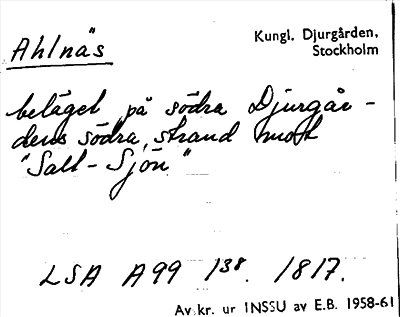 Ahlnäs
Kungl. Djurgården,
Stockholm
beläget på södra Djurgår-
dens södra strand mot
"Salt-Sjön"
LSA A99 1³⁸. 1817.
Av kr. ur INSSU av E.B. 1958-61